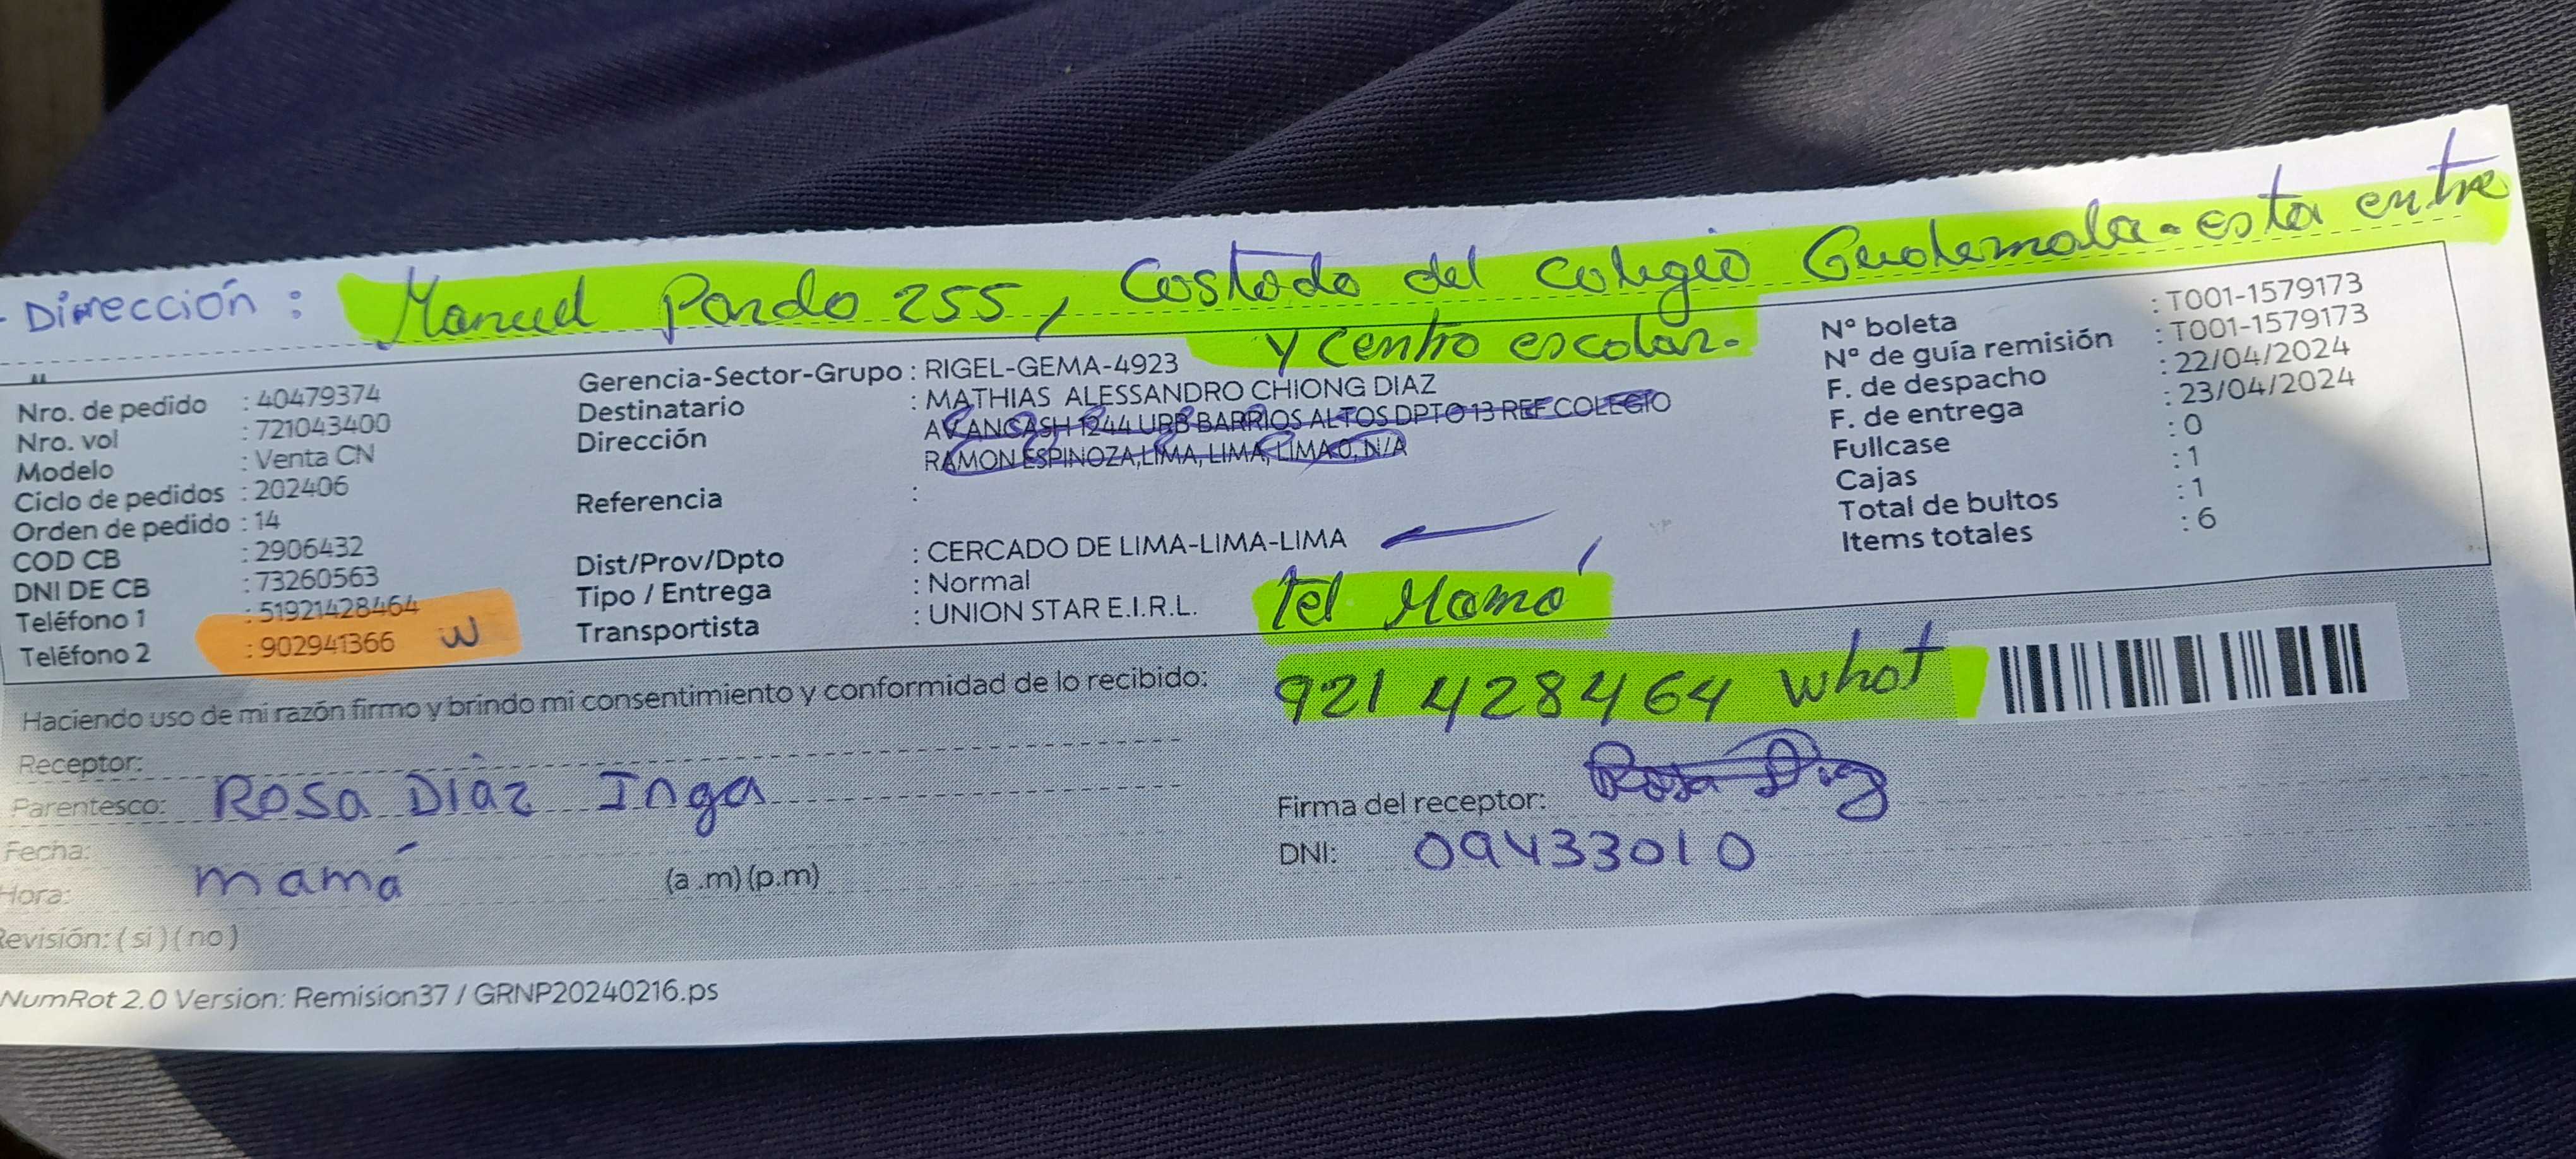 - Dirección : Manuel Pardo 255, Costado del Colegio Guatemala - esta entre
y Centro escolar.
Nro. de pedido : 40479374
Nro. vol : 721043400
Modelo : Venta CN
Ciclo de pedidos : 202406
Orden de pedido : 14
COD CB : 2906432
DNI DE CB : 73260563
Teléfono 1 : 51921428464
Teléfono 2 : 902941366 W
Gerencia-Sector-Grupo : RIGEL-GEMA-4923
Destinatario : MATHIAS ALESSANDRO CHIONG DIAZ
Dirección AV ANCASH 1244 URB BARRIOS ALTOS DPTO 13 REF COLEGIO
RAMON ESPINOZA,LIMA, LIMA, LIMA 0, N/A
Referencia :
Dist/Prov/Dpto : CERCADO DE LIMA-LIMA-LIMA
Tipo / Entrega : Normal
Transportista : UNION STAR E.I.R.L.
N° boleta : T001-1579173
N° de guía remisión : T001-1579173
F. de despacho : 22/04/2024
F. de entrega : 23/04/2024
Fullcase : 0
Cajas : 1
Total de bultos : 1
Items totales : 6
Tel Mamá
921 428464 what
Haciendo uso de mi razón firmo y brindo mi consentimiento y conformidad de lo recibido:
Receptor:
Parentesco: Rosa Díaz Inga
Fecha:
Hora: mamá (a .m) (p.m)
Revisión: ( si ) ( no )
Firma del receptor: Rosa Diaz
DNI: 09433010
NumRot 2.0 Version: Remision37 / GRNP20240216.ps